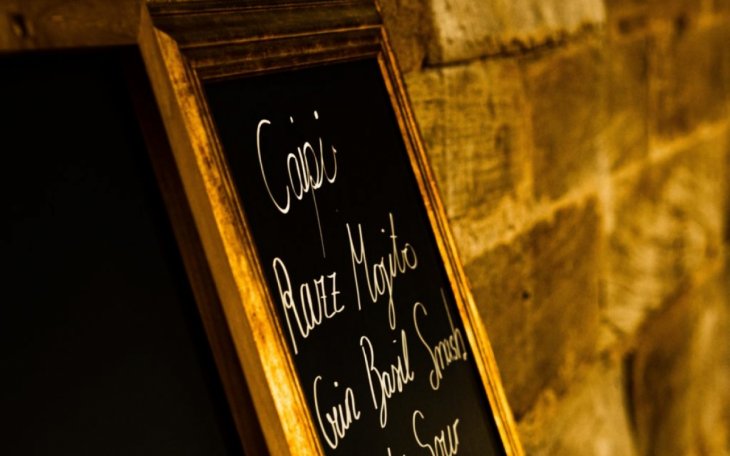 Caipi
Razz Mojito
Gin Basil Smash
Sour